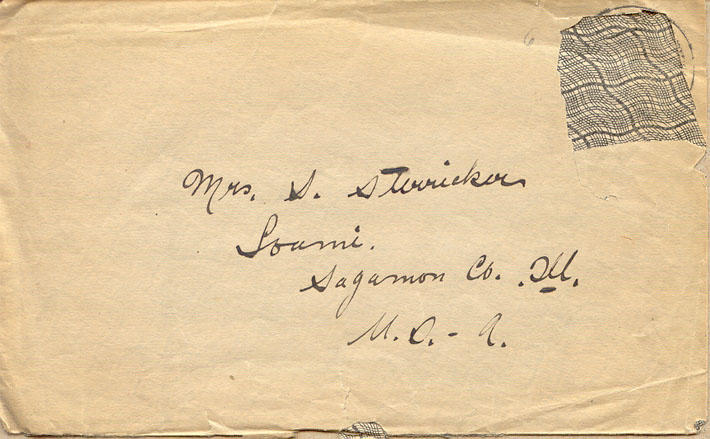 Mrs. S. Sterricker
Loami.
Sagamon Co. Ill.
U.S.-A.